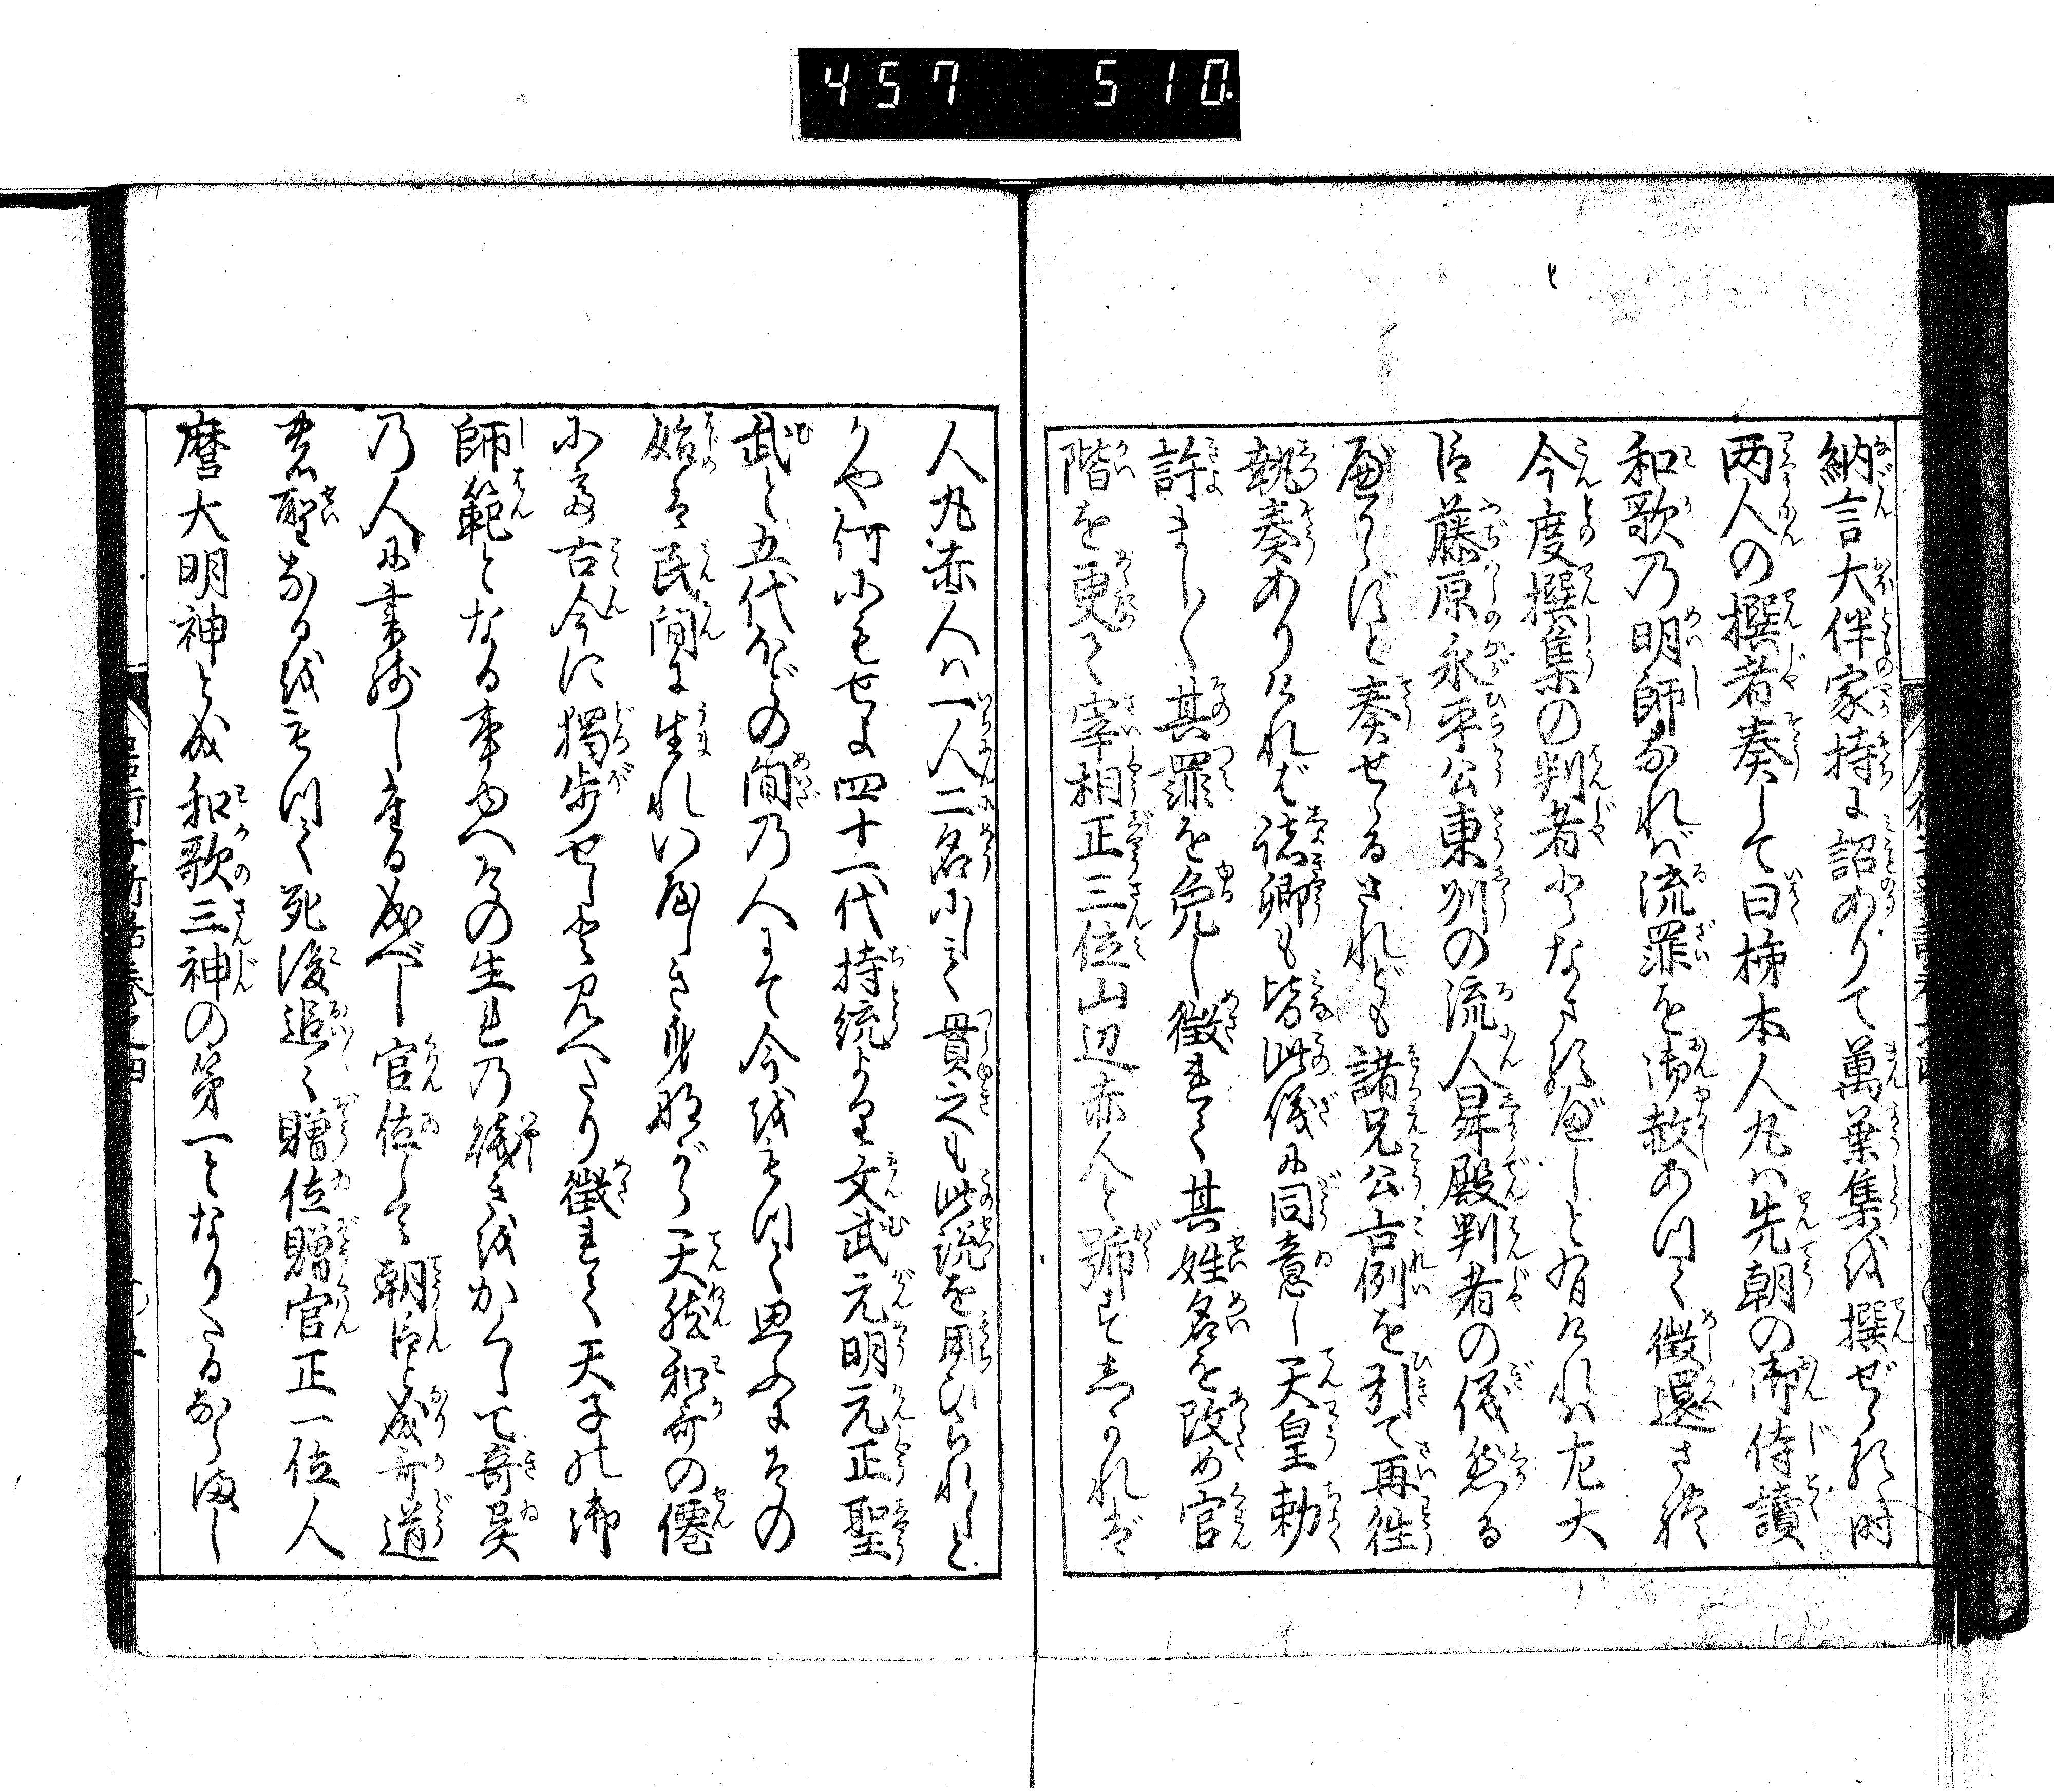 457 510
納言大伴家持に詔ありて萬葉集を撰ぜらる時
両人の撰者奏して曰柿本人丸は先朝の御侍讀
和歌乃明師なれば流罪を御赦あつて徴還され
今度撰集の判者となさるべしと有ければ左大
臣藤原永平公東州の流人昇殿判者の儀然る
べからずと奏せらるされども諸兄公古例を引て再往
執奏ありければ諸卿も皆此儀に同意し天皇勅
許まし〳〵其罪を免し徴れて其姓名を改め官
階を更て宰相正三位山辺赤人と號すしかれば
人丸赤人は一人二名にして貫之も此説を用ひられしと
かや何にもせよ四十一代持統より文武元明元正聖
武と五代ほどの間乃人にて今を以て思ふにその
始は民間に生れいやしき身ながら天然和哥の僊
にて古今に獨歩せしと見へたり徴れて天子の御
師範となる事ゆへその生れ乃賤きをかくして奇異
乃人に書残し有る成べし官位して朝臣と成哥道
の聖なるを以て死後追て贈位贈官正一位人
麿大明神と成和歌三神の第一となりたるなるべし